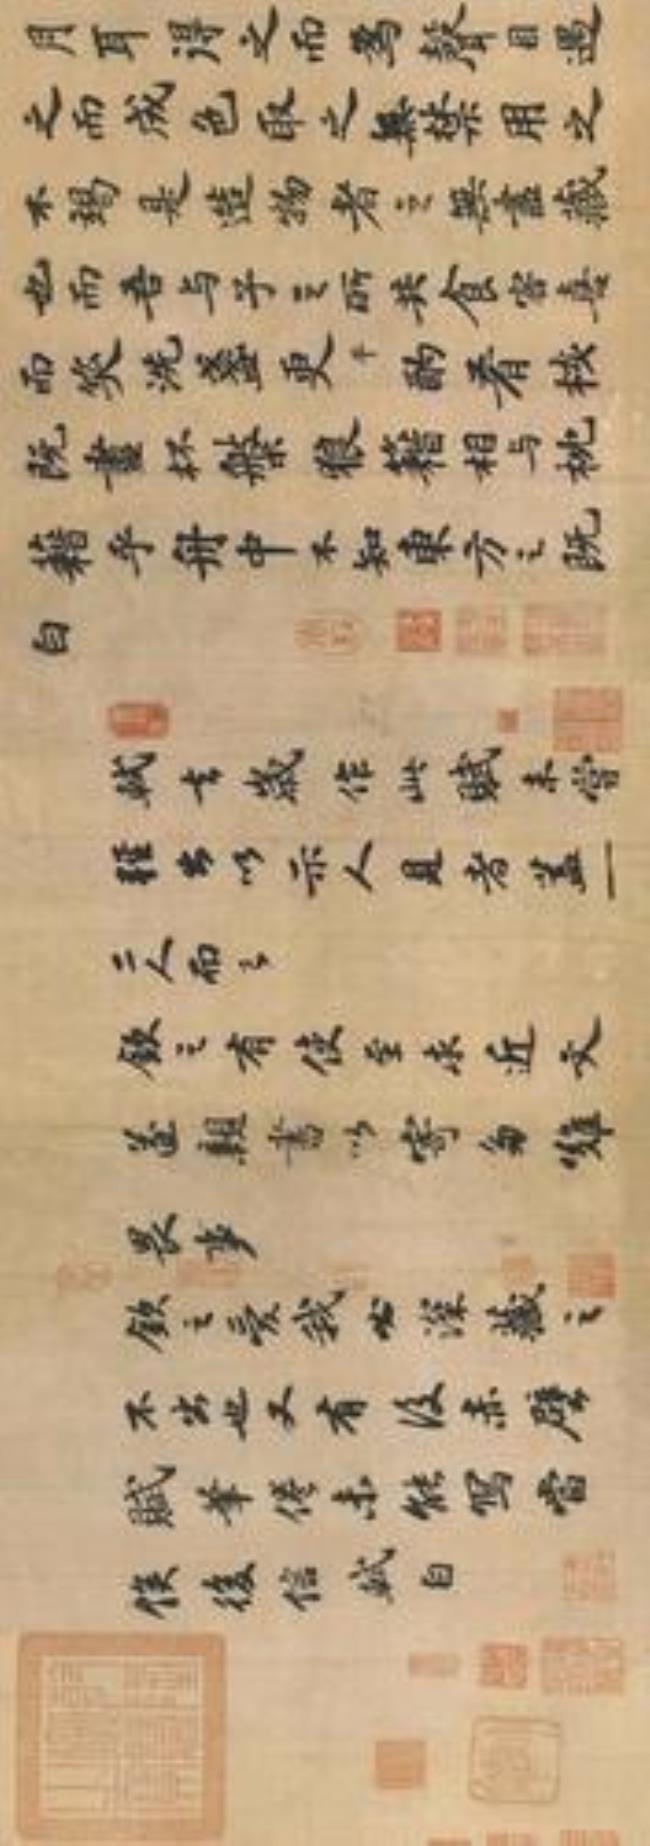 月耳得之而為聲目遇
之而成色取之無禁用之
不竭是造物者之無盡藏
也而吾与子之所共食客喜
而笑洗盞更平酌肴核
既盡杯盤狼籍相与枕
藉乎舟中不知東方之既
白
軾去歲作此賦未嘗
輕出以示人見者蓋一
二人而已
欽之有使至求近文
遂親書以寄多難
畏事
欽之愛我必深藏之
不出也又有後赤壁
賦筆倦未能寫當
俟後信軾白